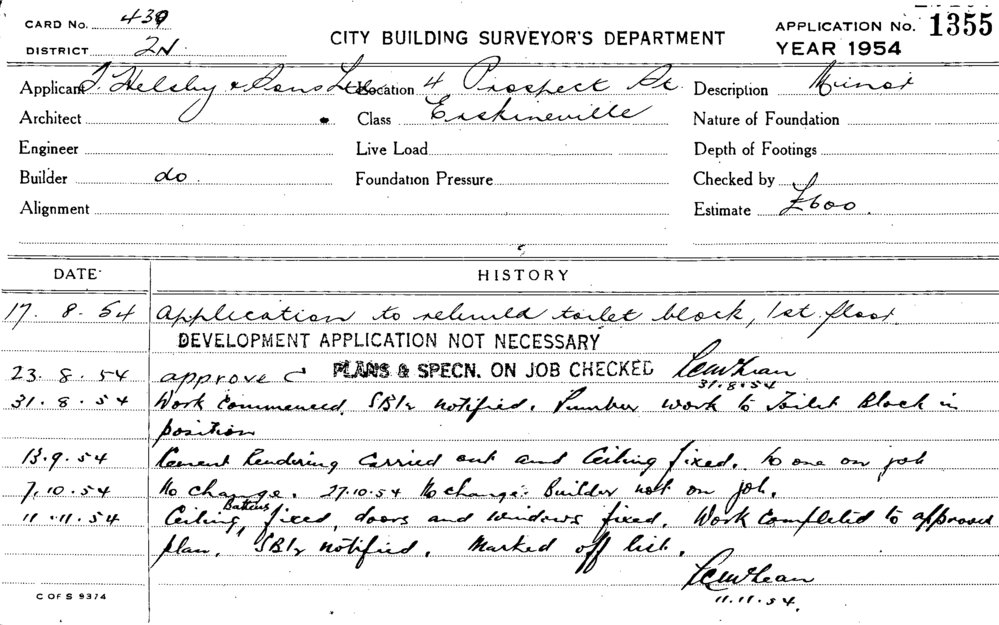 CARD No. 430
APPLICATION No. 1355
DISTRICT 2N
CITY BUILDING SURVEYOR'S DEPARTMENT
YEAR 1954
Applicant J. Helsby & Sons Ltd Location 4 Prospect St. Description Minor
Architect Class Erskineville Nature of Foundation
Engineer Live Load Depth of Footings
Builder do Foundation Pressure Checked by
Alignment Estimate £600.
DATE HISTORY
17. 8. 54 Application to rebuild toilet block, 1st floor.
DEVELOPMENT APPLICATION NOT NECESSARY
23. 8. 54 approved PLANS & SPECN. ON JOB CHECKED
31.8.54
31. 8. 54 Work Commenced. notified. work to Toilet Block in
position
13.9.54 Cement Rendering Carried out and Ceiling fixed. No one on job
7.10.54 No change. 27.10.54 No change. Builder not on job.
11.11.54 Ceiling Battens fixed, doors and windows fixed. Work Completed to approved
plan. notified. Marked off list.
11.11.54.
C OF S 9374